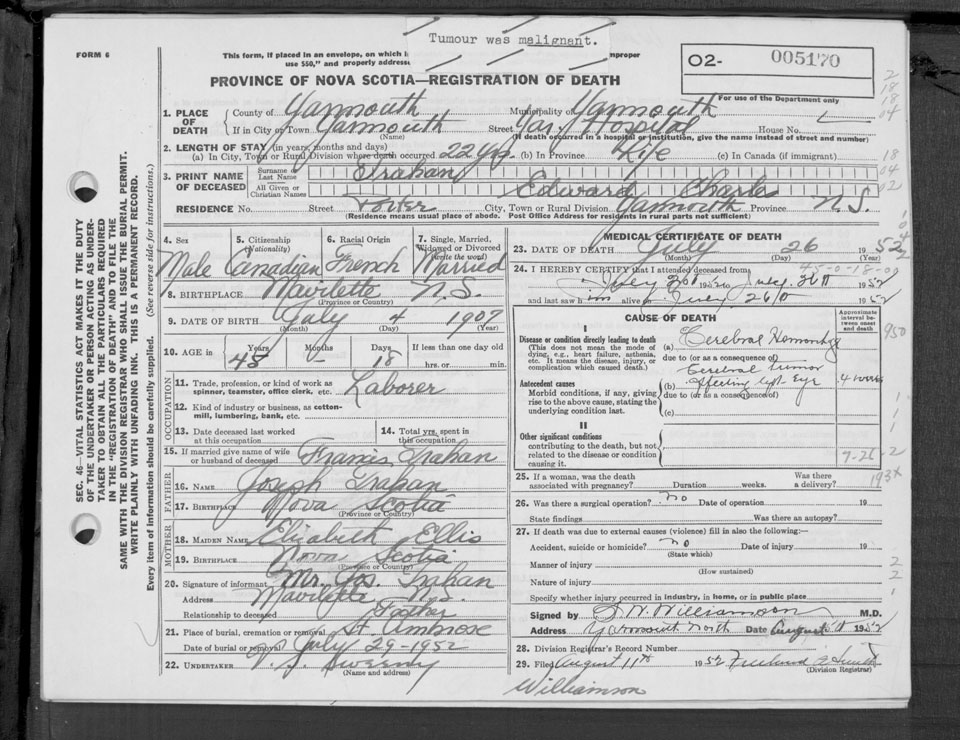 Tumour was malignant.
FORM 6
This form, if placed in an envelope, on which i improper
use $50," and properly addresse
O2- 005170
For use of the Department only
PROVINCE OF NOVA SCOTIA—REGISTRATION OF DEATH
1. PLACE OF DEATH
County of Yarmouth Municipality of Yarmouth
If in City or Town Yarmouth Street Yar. Hospital House No.
(Name) (If death occurred in a hospital or institution, give the name instead of street and number)
2. LENGTH OF STAY (in years, months and days)
(a) In City, Town or Rural Division where death occurred 22 yrs. (b) In Province Life (c) In Canada (if immigrant)
3. PRINT NAME OF DECEASED
Surname or Last Name Trahan
All Given or Christian Names Edward Charles
RESIDENCE No. Street Porter City, Town or Rural Division Yarmouth Province N.S.
(Residence means usual place of abode. Post Office Address for residents in rural parts not sufficient)
4. Sex Male
5. Citizenship (Nationality) Canadian
6. Racial Origin French
7. Single, Married, Widowed or Divorced (write the word) Married
8. BIRTHPLACE Mavilette N.S.
(Province or Country)
9. DATE OF BIRTH July 4 1907
(Month) (Day) (Year)
10. AGE in Years 45 Months - Days 18 If less than one day old
hrs. or min.
OCCUPATION
11. Trade, profession, or kind of work as spinner, teamster, office clerk, etc. Laborer
12. Kind of industry or business, as cotton-mill, lumbering, bank, etc.
13. Date deceased last worked at this occupation
14. Total yrs. spent in this occupation
15. If married give name of wife or husband of deceased Francis Trahan
FATHER
16. NAME Joseph Trahan
17. BIRTHPLACE Nova Scotia
(Province or Country)
MOTHER
18. MAIDEN NAME Elizabeth Ellis
19. BIRTHPLACE Nova Scotia
(Province or Country)
20. Signature of informant Mr. Jos. Trahan
Address Mavilette N.S.
Relationship to deceased Father
21. Place of burial, cremation or removal St. Ambrose
Date of burial or removal July 29-1952
22. UNDERTAKER V. J. Sweeny
(Name and address)
MEDICAL CERTIFICATE OF DEATH
23. DATE OF DEATH July 26 1952
(Month) (Day) (Year)
24. I HEREBY CERTIFY that I attended deceased from
July 26 1952 to July 26 1952
and last saw him alive on July 26 1952
CAUSE OF DEATH
Approximate interval between onset and death
I
Disease or condition directly leading to death
(This does not mean the mode of dying, e.g., heart failure, asthenia, etc. It means the disease, injury, or complication which caused death.)
(a) Cerebral Hemorrhage
due to (or as a consequence of)
Antecedent causes
Morbid conditions, if any, giving rise to the above cause, stating the underlying condition last.
(b) Cerebral Tumor affecting left Eye 4 weeks
due to (or as a consequence of)
(c)
II
Other significant conditions
contributing to the death, but not related to the disease or condition causing it.
7-26-2
25. If a woman, was the death associated with pregnancy? Duration weeks. Was there a delivery?
26. Was there a surgical operation? no Date of operation 19
State findings Was there an autopsy?
27. If death was due to external causes (violence) fill in also the following:—
Accident, suicide or homicide? no Date of injury 19
(State which)
Manner of injury
(How sustained)
Nature of injury
Specify whether injury occurred in industry, in home, or in public place
Signed by Williamson M.D.
Address Yarmouth North Date August 1952
28. Division Registrar's Record Number
29. Filed August 11th 1952 Smith
(Division Registrar)
Williamson
SEC. 46—VITAL STATISTICS ACT MAKES IT THE DUTY
OF THE UNDERTAKER OR PERSON ACTING AS UNDER-
TAKER TO OBTAIN ALL THE PARTICULARS REQUIRED
IN THE "REGISTRATION OF DEATH" AND TO FILE THE
SAME WITH THE DIVISION REGISTRAR WHO SHALL ISSUE THE BURIAL PERMIT.
WRITE PLAINLY WITH UNFADING INK. THIS IS A PERMANENT RECORD.
Every item of information should be carefully supplied. (See reverse side for instructions.)